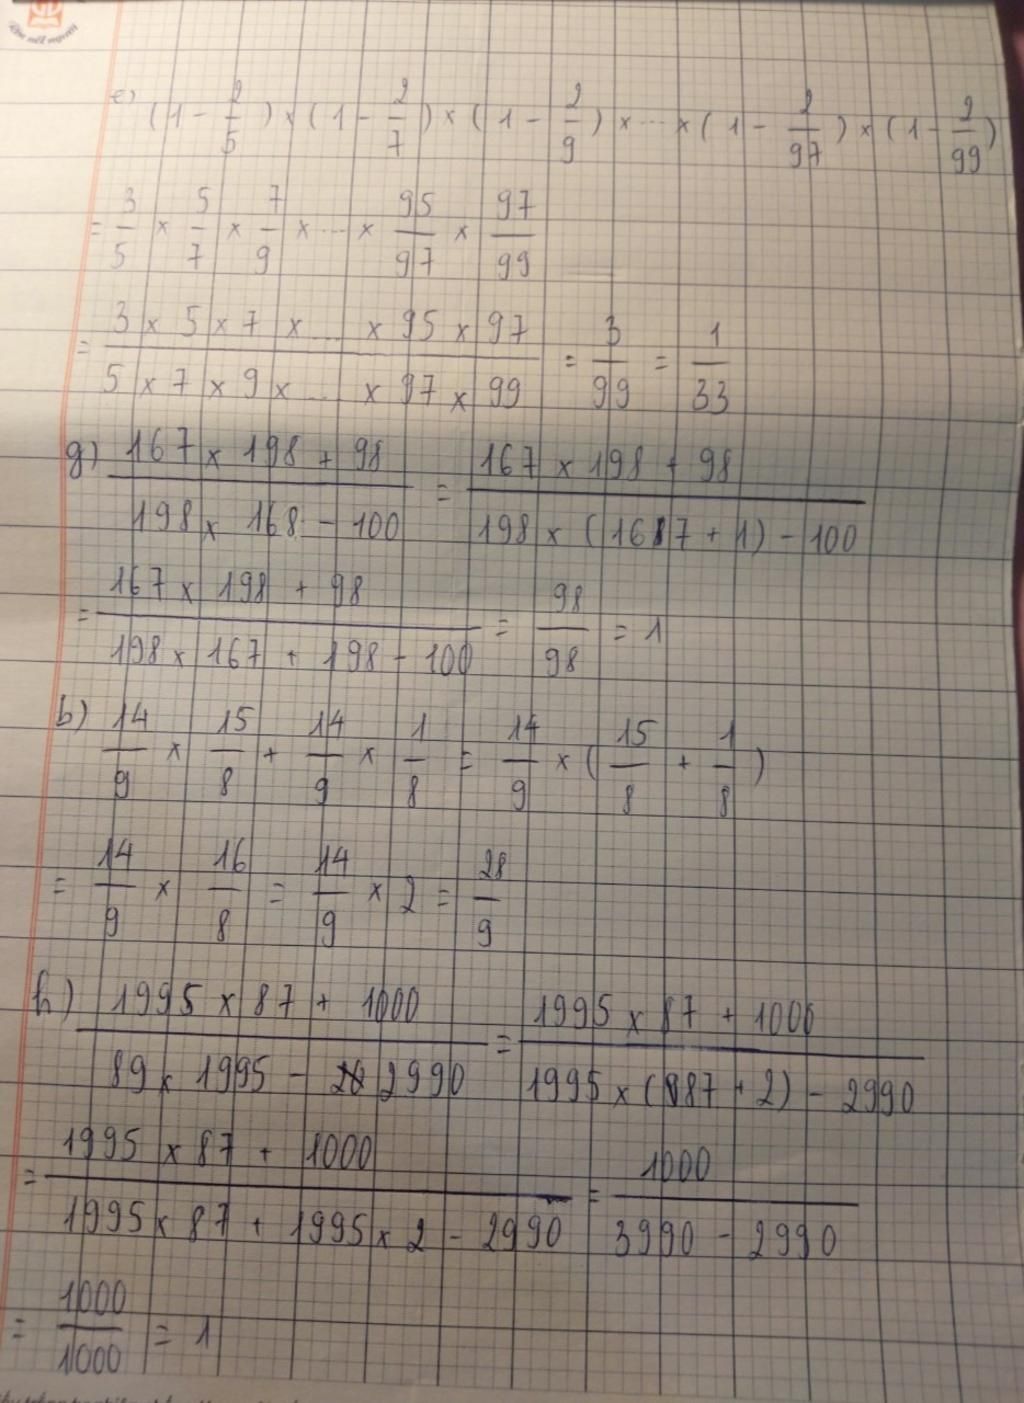 e) (1 - 2/5) × (1 - 2/7) × (1 - 2/9) × ... × (1 - 2/97) × (1 - 2/99)
= 3/5 × 5/7 × 7/9 × ... × 95/97 × 97/99
= (3 × 5 × 7 × ... × 95 × 97)/(5 × 7 × 9 × ... × 97 × 99) = 3/99 = 1/33
g) (167 × 198 + 98)/(198 × 168 - 100) = (167 × 198 + 98)/(198 × (167 + 1) - 100)
= (167 × 198 + 98)/(198 × 167 + 198 - 100) = 98/98 = 1
b) 14/9 × 15/8 + 14/9 × 1/8 = 14/9 × (15/8 + 1/8)
= 14/9 × 16/8 = 14/9 × 2 = 28/9
h) (1995 × 87 + 1000)/(89 × 1995 - 2990) = (1995 × 87 + 1000)/(1995 × (87 + 2) - 2990)
= (1995 × 87 + 1000)/(1995 × 87 + 1995 × 2 - 2990) = 1000/(3990 - 2990)
= 1000/1000 = 1